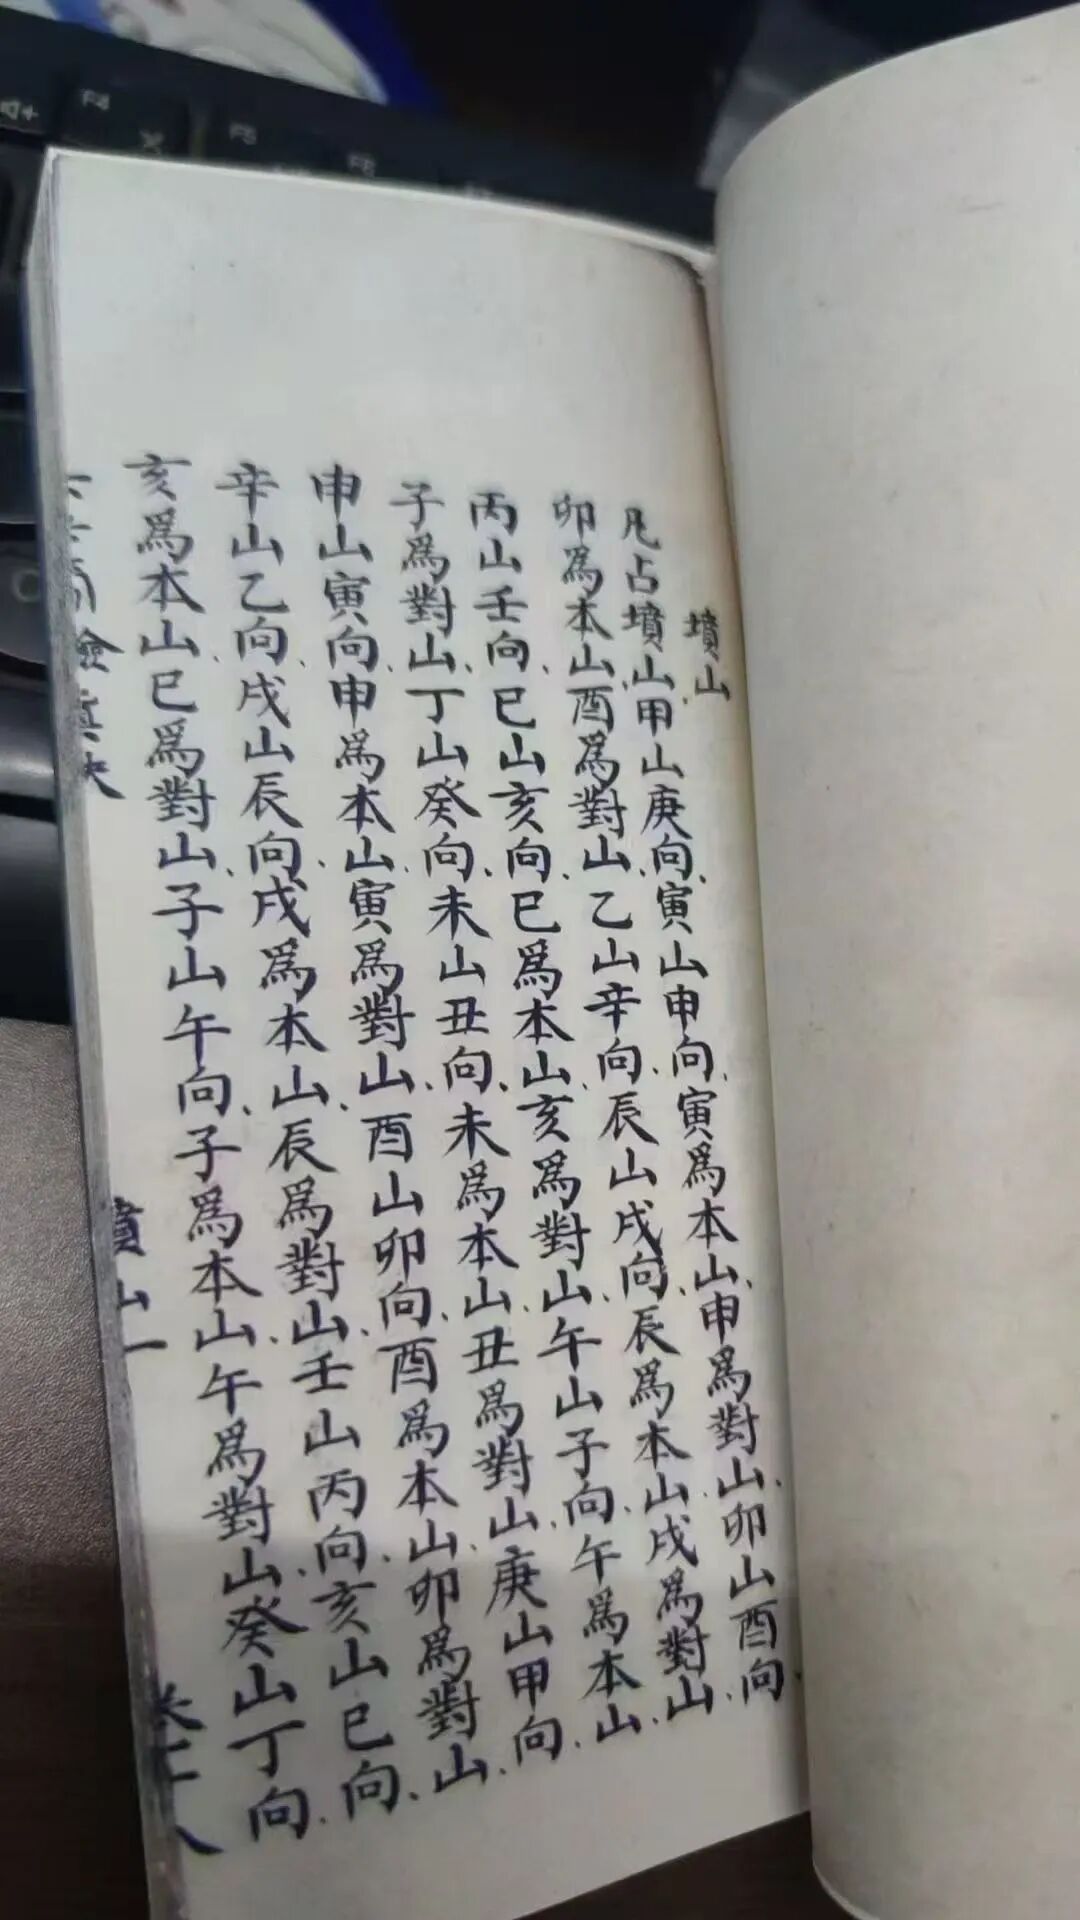 墳山
凡占墳山甲山庚向、寅山申向、寅爲本山、申爲對山、卯山酉向、
卯爲本山、酉爲對山、乙山辛向、辰山戌向、辰爲本山、戌爲對山、
丙山壬向、巳山亥向、巳爲本山、亥爲對山、午山子向、午爲本山、
子爲對山、丁山癸向、未山丑向、未爲本山、丑爲對山、庚山甲向、
申山寅向、申爲本山、寅爲對山、酉山卯向、酉爲本山、卯爲對山、
辛山乙向、戌山辰向、戌爲本山、辰爲對山、壬山丙向、亥山巳向、
亥爲本山、巳爲對山、子山午向、子爲本山、午爲對山、癸山丁向、
墳山一
F4
F5
F6